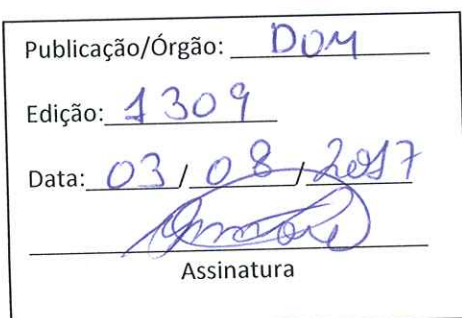 Publicação/Órgão: DOM
Edição: 1309
Data: 03/08/2017
Assinatura